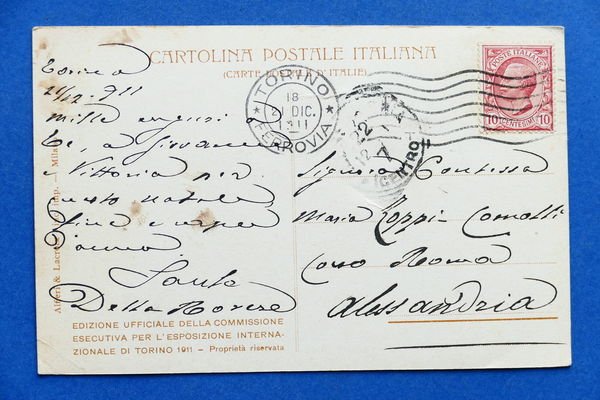 CARTOLINA POSTALE ITALIANA
(CARTE POSTALE D'ITALIE)
Torino
21/12 911
mille auguri a
Te, a Giovanni
e Vittoria per
questo natale
fine e
d'anno
Santa
Della Rovere
TORINO
18
21 DIC.
11
FERROVIA
CENTRO
POSTE ITALIANE
10 CENTESIMI 10
Signora Contessa
Maria Zoppi-Comotti
Corso Roma
Alessandria
Alfieri & Lacroix, Imp. — Milano
EDIZIONE UFFICIALE DELLA COMMISSIONE
ESECUTIVA PER L'ESPOSIZIONE INTERNA-
ZIONALE DI TORINO 1911 — Proprietà riservata